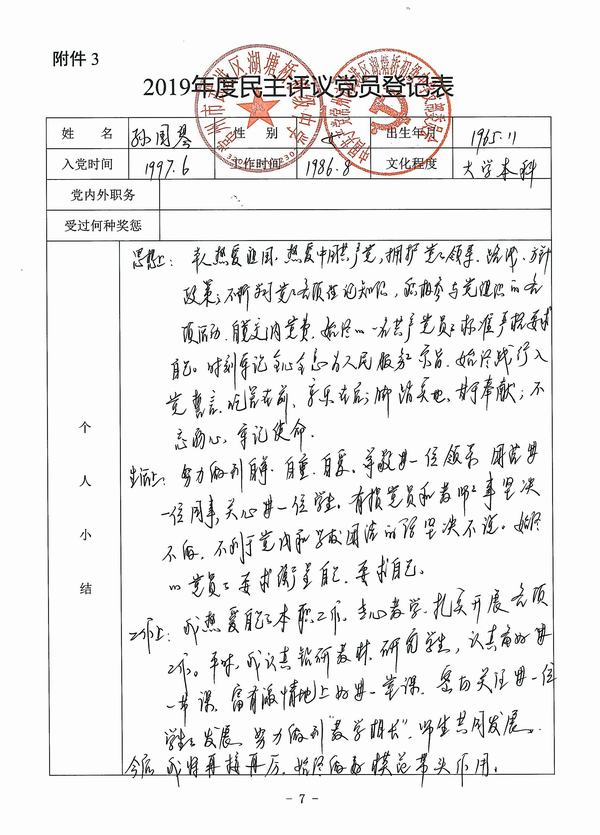 附件 3
2019年度民主评议党员登记表
姓 名 孙国琴 性 别 女 出生年月 1965.11
入党时间 1997.6 工作时间 1986.8 文化程度 大学本科
党内外职务
受过何种奖惩
个人小结
思想上：本人热爱祖国、热爱中国共产党，拥护党的领导、路线、方针
政策；不断学习党的各项理论知识，积极参与党组织的各
项活动，自觉交纳党费，始终以一名共产党员的标准严格要求
自己。时刻牢记全心全意为人民服务宗旨，始终践行入
党誓言，吃苦在前，享乐在后；脚踏实地，甘于奉献；不
忘初心，牢记使命。
生活上：努力做到自尊、自重、自爱。尊敬每一位领导，团结每
一位同事，关心每一位学生。有损党员和教师的事坚决
不做，不利于党内和学校团结的话坚决不说。始终
以党员的要求衡量自己、要求自己。
工作上：我热爱自己的本职工作，专心教学，扎实开展各项
工作。平时，我认真钻研教材，研究学生，认真备好每
一节课，富有激情地上好每一堂课，密切关注每一位
学生的发展，努力做到“教学相长”，师生共同发展。
今后我将再接再厉，始终做好模范带头作用。
- 7 -